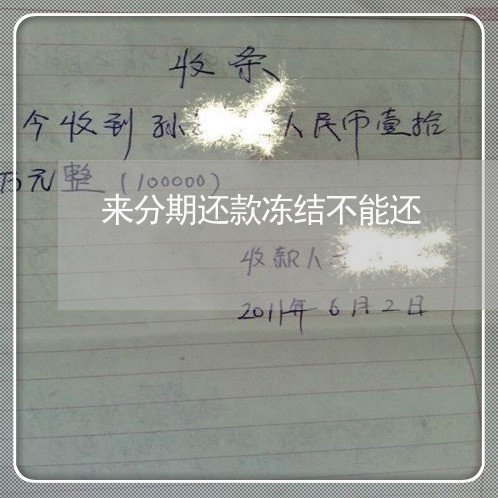 收条
今收到孙 人民币壹拾
万元整(100000)
来分期还款冻结不能还
收款人
2011年6月2日